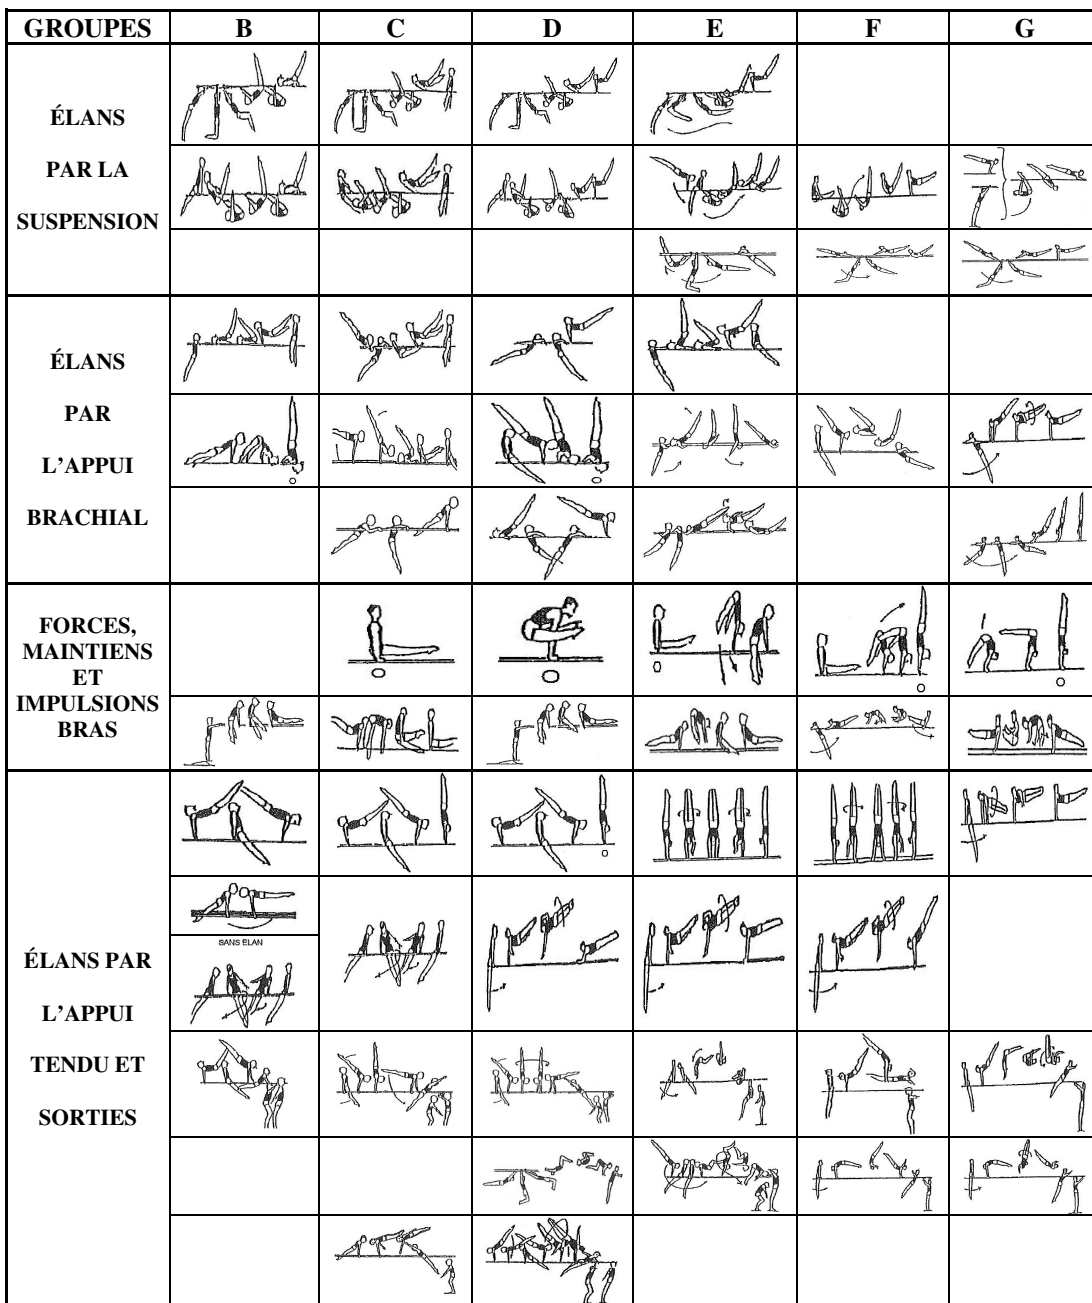 GROUPES B C D E F G
ÉLANS
PAR LA
SUSPENSION
ÉLANS
PAR
L'APPUI
BRACHIAL
FORCES,
MAINTIENS
ET
IMPULSIONS
BRAS
ÉLANS PAR
L'APPUI
TENDU ET
SORTIES
SANS ELAN